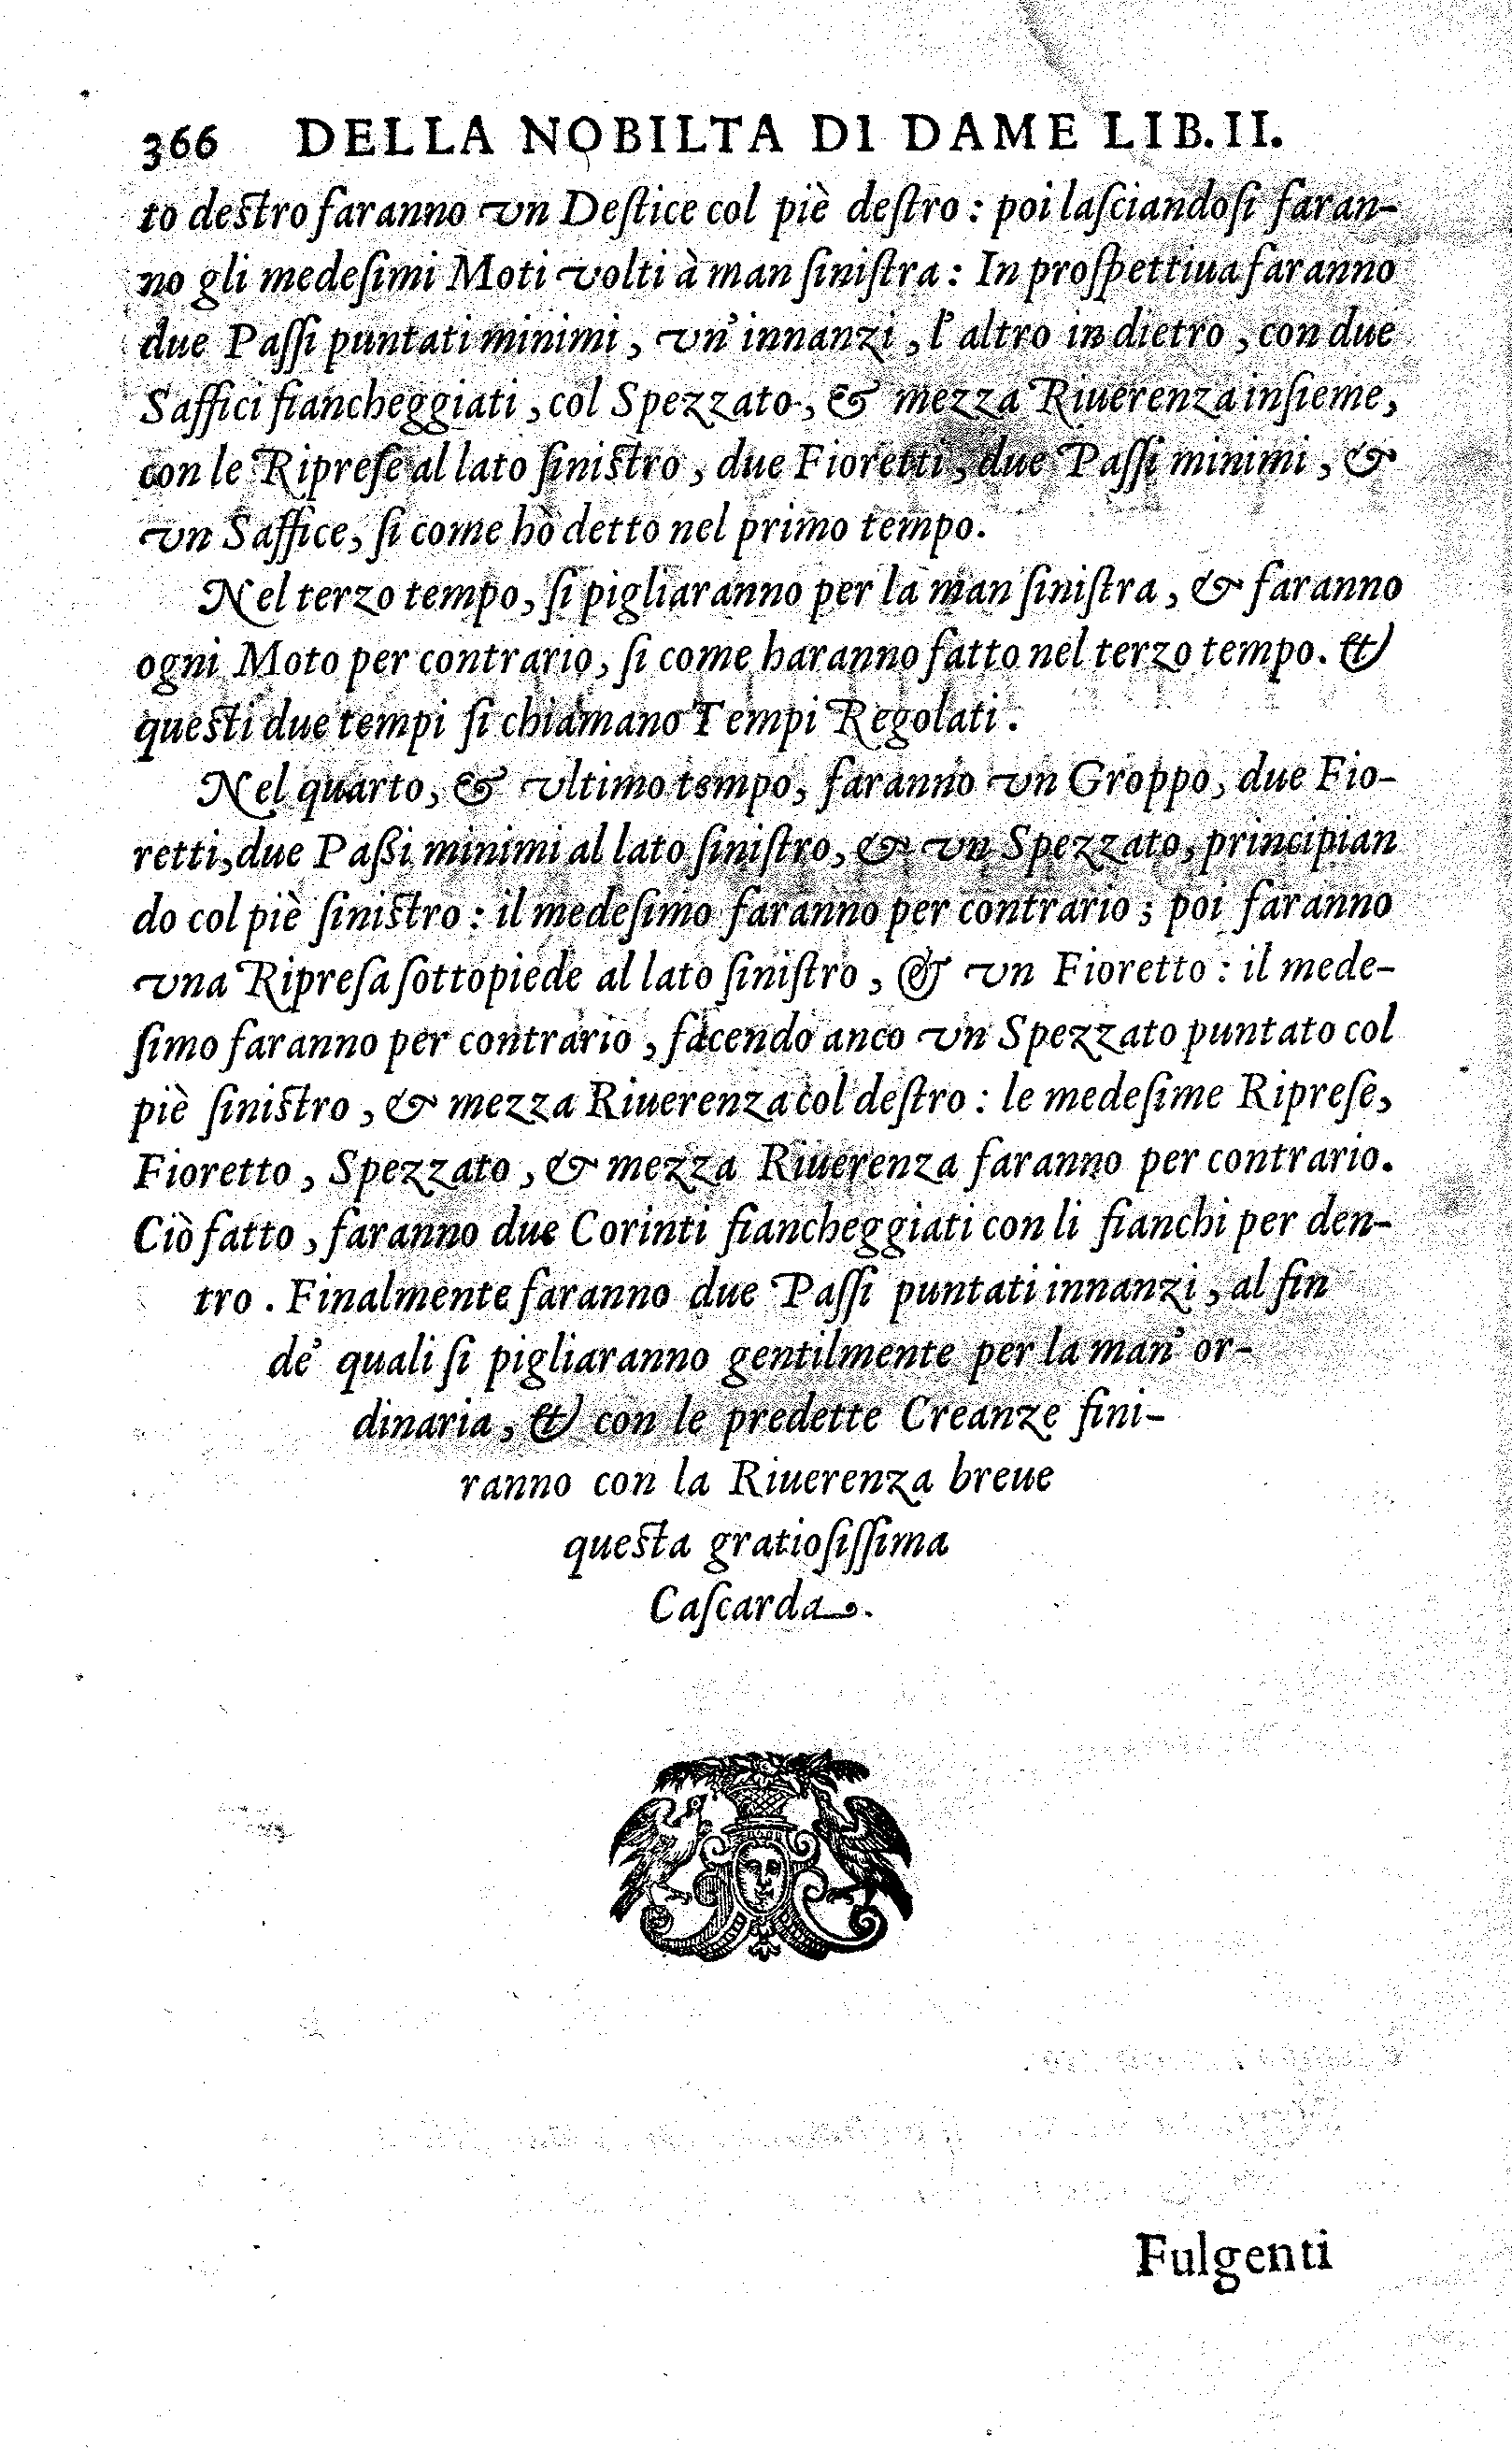 366 DELLA NOBILTA DI DAME LIB. II.
to deſtro faranno vn Deſtice col piè deſtro : poi laſciandoſi faran-
no gli medeſimi Moti volti à man ſiniſtra : In proſpettiua faranno
due Paſſi puntati minimi , vn' innanzi , l' altro in dietro , con due
Saffici fiancheggiati , col Spezzato , & mezza Riuerenza inſieme,
con le Ripreſe al lato ſiniſtro , due Fioretti , due Paſſi minimi , &
vn Saffice, ſi come hò detto nel primo tempo.
Nel terzo tempo, ſi pigliaranno per la man ſiniſtra , & faranno
ogni Moto per contrario, ſi come haranno fatto nel terzo tempo. &
queſti due tempi ſi chiamano Tempi Regolati .
Nel quarto, & vltimo tempo, faranno vn Groppo, due Fio-
retti, due Paßi minimi al lato ſiniſtro, & vn Spezzato, principian
do col piè ſiniſtro : il medeſimo faranno per contrario ; poi faranno
vna Ripreſa ſottopiede al lato ſiniſtro , & vn Fioretto : il mede-
ſimo faranno per contrario , facendo anco vn Spezzato puntato col
piè ſiniſtro , & mezza Riuerenza col deſtro : le medeſime Ripreſe,
Fioretto , Spezzato , & mezza Riuerenza faranno per contrario.
Ciò fatto , faranno due Corinti fiancheggiati con li fianchi per den-
tro . Finalmente faranno due Paſſi puntati innanzi , al fin
de' quali ſi pigliaranno gentilmente per la man' or-
dinaria , & con le predette Creanze fini-
ranno con la Riuerenza breue
queſta gratioſiſſima
Caſcarda .
Fulgenti